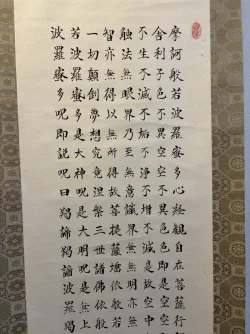 摩訶般若波羅蜜多心経観自在菩薩行
舎利子色不異空空不異色色即是空
不生不滅不垢不浄不増不減是故空中
触法無眼界乃至無意識界無無明亦
智亦無得以無所得故菩提薩埵依般若
一切顛倒夢想究竟涅槃三世諸佛依般
若波羅蜜多是大神呪是大明呪是無上
波羅蜜多呪即説呪曰羯諦羯諦波羅羯